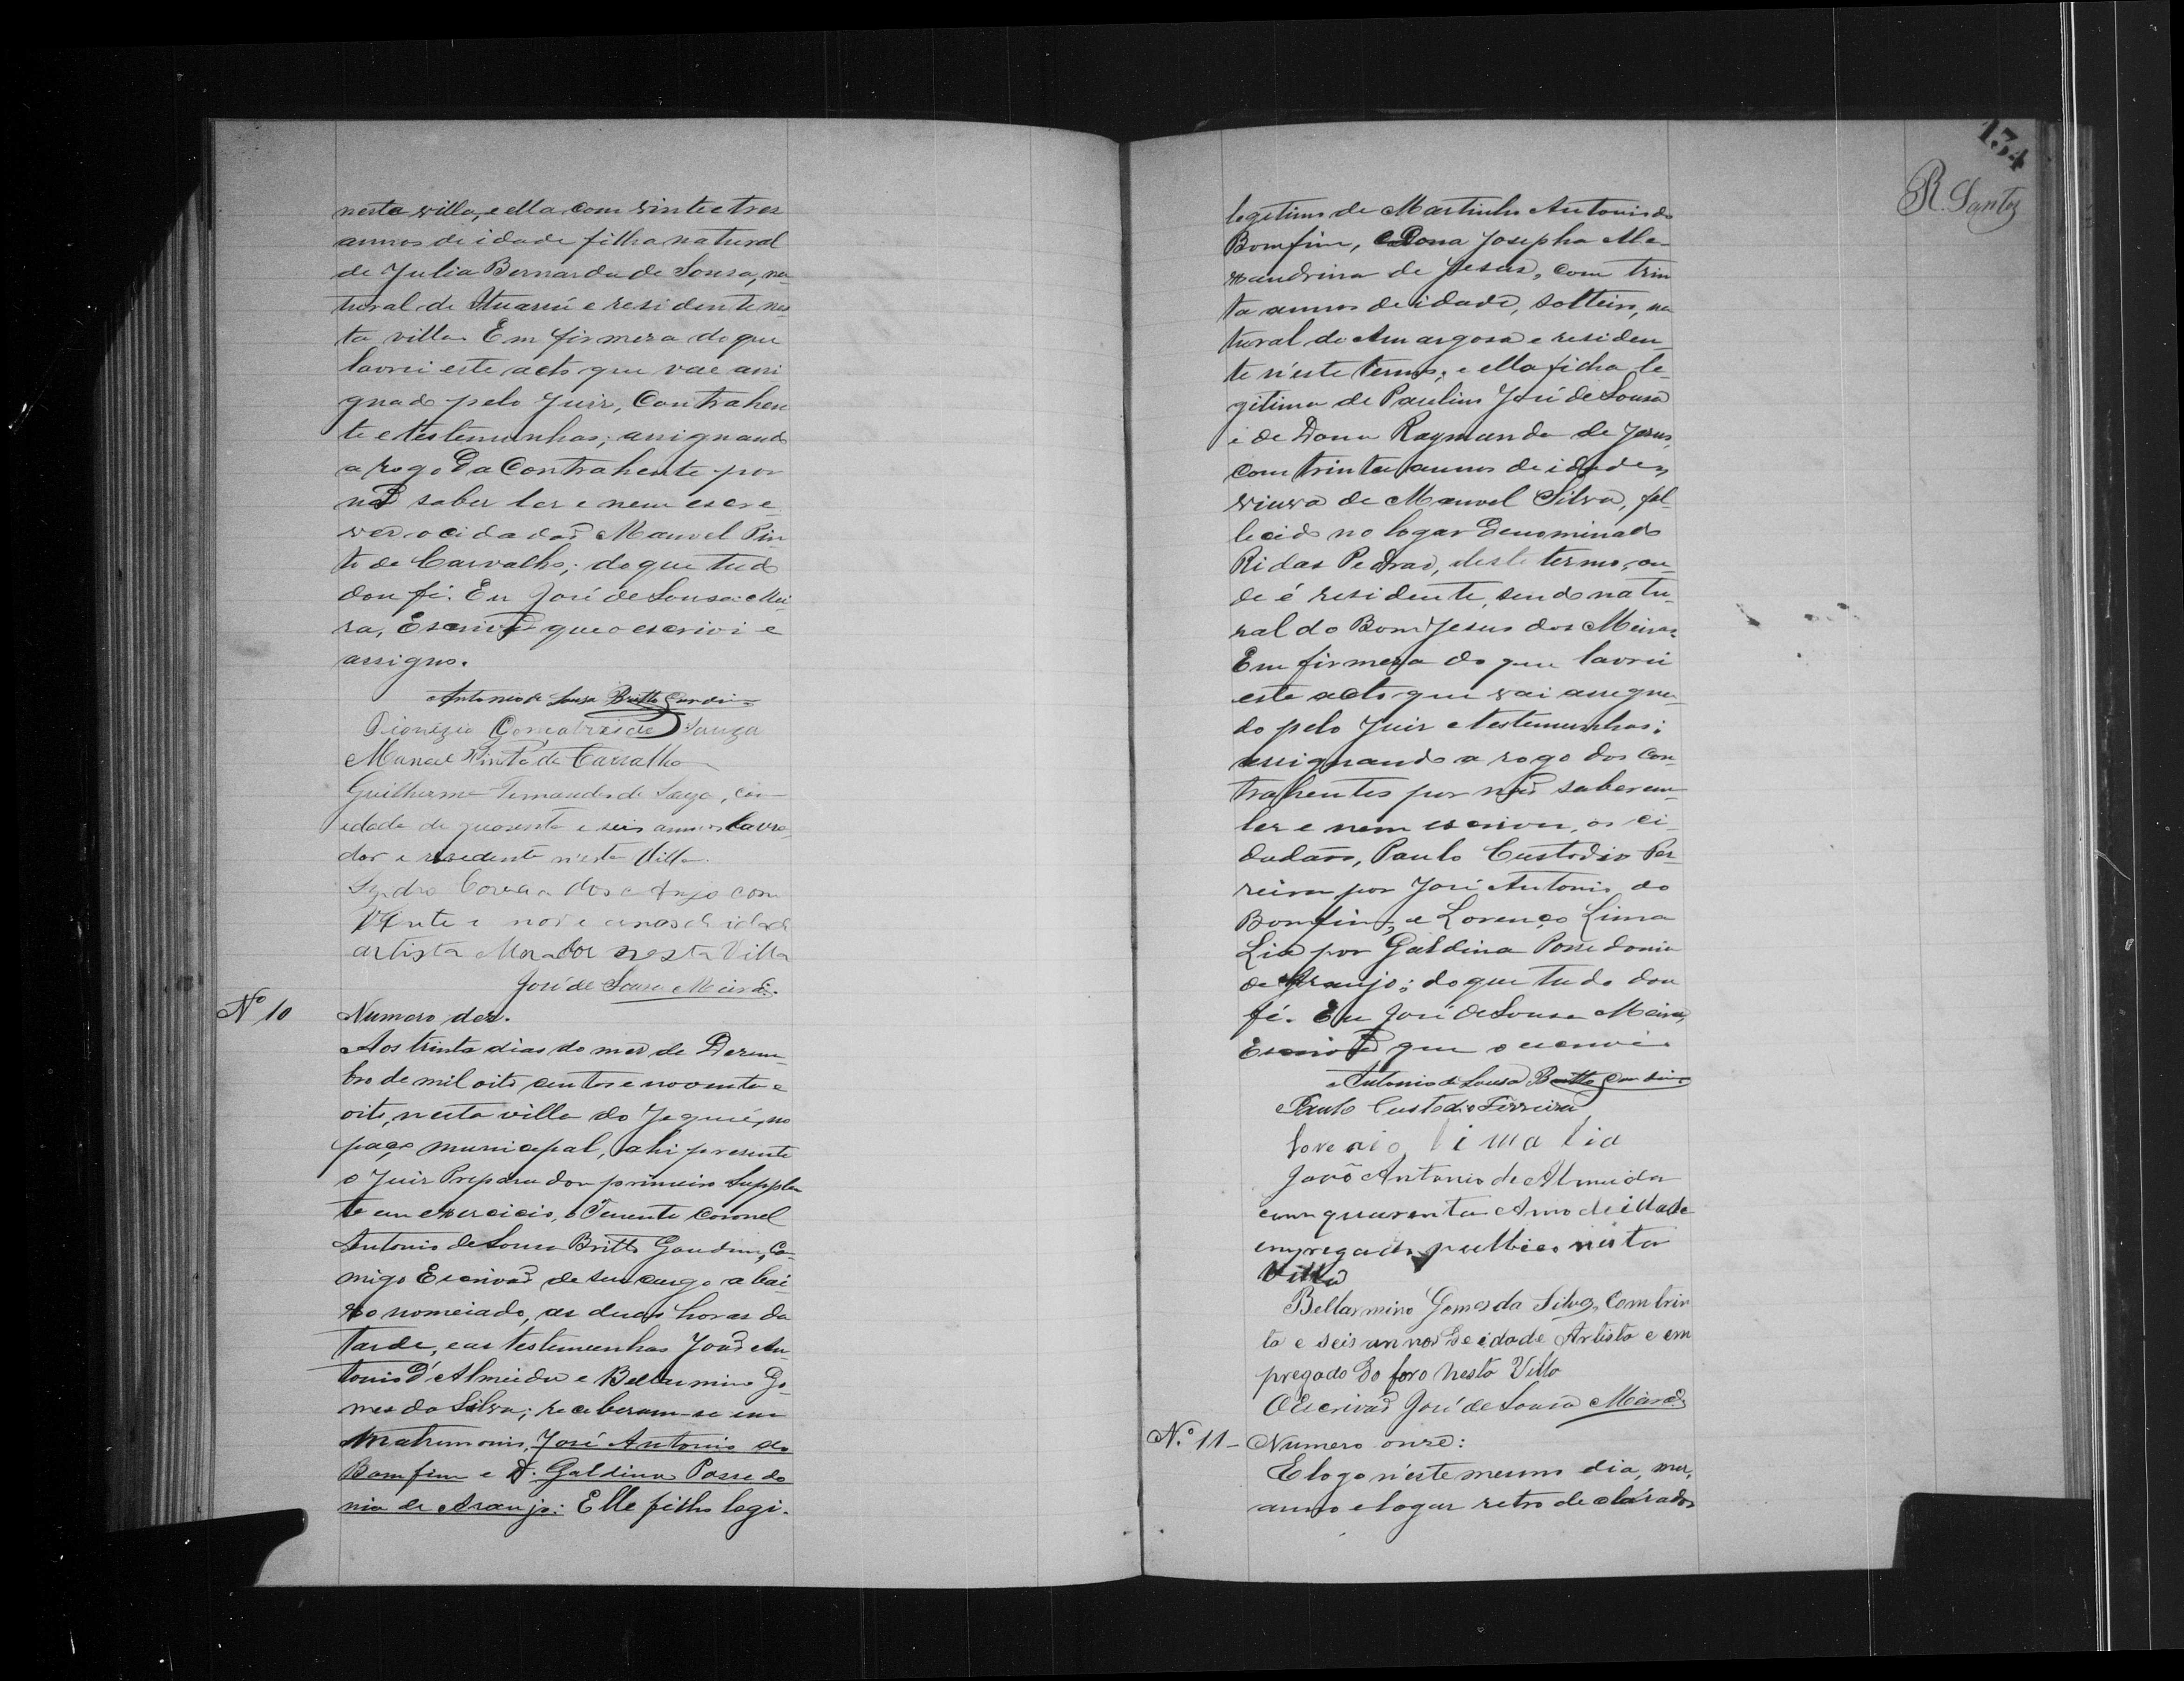 nesta villa, e ella com vinte e tres
annos de idade filha natural
de Julia Bernarda de Sousa, na-
tural de Ituassú e residente nes
ta villa. Em firmesa do que
lavrei este acto que vae assi
gnado pelo Juiz, Contrahen
te e testemunhas; assignando
a rogo da Contrahente por
não saber ler e nem escre-
ver o cidadão Manoel Pin
to de Carvalho; do que tudo
dou fé. Eu José de Sousa Mei
ra, Escrivão que o escrivi e
assigno.
Antonio de Sousa Britto Gondim
Dionizio Gonçalves de Souza
Manoel Pinto de Carvalho
Guilherme Fernandes de , com
idade de quarenta e seis annos lavra-
dor e residente n'esta Villa.
Correia dos Anjo com
Vinte e nove anos de idade
artista Morador nesta Villa
José de Sousa Meira.
Nº 10 Numero dez.
Aos trinta dias do mez de Dezem-
bro de mil oito centos e noventa e
oito, nesta villa do Jequié, no
paço municipal, ahi presente
o Juiz Preparador primeiro Supplen
te em exercicio, o Tenente Coronel
Antonio de Sousa Britto Gondim, Co-
migo Escrivão de seu cargo abai-
xo nomeiado, as duas horas da
tarde, e as testemunhas João An-
tonio d'Almeida e Bellarmino Go-
mes da Silva; receberam-se em
Matrimonio, José Antonio do
Bomfim e D. Galdina Possedo
nia de Araujo: Elle filho legi-
134
R. Santos
legitimo de Martinho Antonio do
Bomfim, e Dona Josepha Ale-
xandrina de Jesus, com trin
ta annos de idade, solteiro, na
tural de Amargosa e residen-
te n'este termo; e ella ficha le-
gitima de Paulino José de Sousa
e de Dona Raymunda de Jesus,
com trinta annos de idade,
viuva de Manoel Silva, fal-
lecido no logar denominado
Ri das Pedras, deste termo, on-
de é residente, sendo natu-
ral do Bom Jesus dos Meiras
Em firmeza do que lavrei
este acto que vai assigna-
do pelo Juiz e testemunhas;
assignando a rogo dos Con-
trahentes por não saberem
ler e nem escrever, os ci-
dadãos, Paulo Custodio Fer-
reira por José Antonio do
Bomfim, e Lorenço Lima
Lia por Galdina Possedonia
de Araujo; do que tudo dou
fé. Eu José de Sousa Meira,
Escrivão que o escrivi
Antonio de Sousa Britto Gondim
Paulo Custodio Ferreira
Lorenço lima lia
João Antonio de Almeida
com quarenta Anno de idade
empregado publico nesta
Villa
Bellarmino Gomes da Silva, Com trin
ta e seis annos de idade Artista e em
pregado do foro nesta Villa
O Escrivão José de Sousa Meira
N.º 11- Numero onze:
E logo n'este mesmo dia, mez,
anno e logar retro declarados